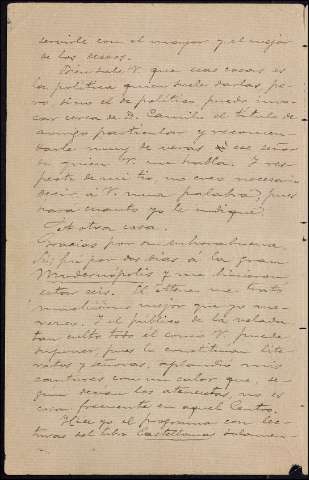 servirle con el mayor y el mejor
de los deseos.
Bien sabe V. que esas cosas es
la política quien suele darlas pe-
ro, sino el de político, puedo invo-
car cerca de D. Camilo el título de
amigo particular y recomen-
darle muy de veras ese señor
de quien V. me habla. Y res-
pecto de mi tío, no creo necesario
decir a V. una palabra, pues
hará cuanto yo le indique.
Á otra cosa.
Gracias por su enhorabuena.
Sí, fui por dos días á la gran
Madernópolis y me hicieron
estar seis. El Ateneo me trató
muchísimo mejor que yo me-
rezco. Y el público de la velada
tan culto todo él como V. puede
suponer, pues la constituían lite-
ratos y señoras, aplaudió mis
cantares, con un calor, que, se-
gún decían los ateneístas, no es
cosa frecuente en aquel Centro.
Hice yo el programa con lec-
turas del libro Castellanas solamen-